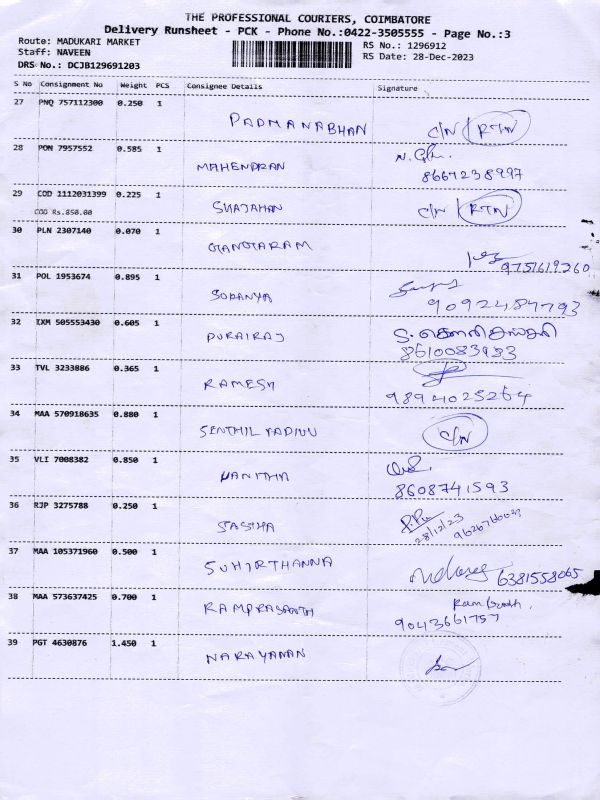 THE PROFESSIONAL COURIERS, COIMBATORE
Delivery Runsheet - PCK - Phone No.:0422-3505555 - Page No.:3
Route: MADUKARI MARKET RS No.: 1296912
Staff: NAVEEN RS Date: 28-Dec-2023
DRS No.: DCJB129691203
S No Consignment No Weight PCS Consignee Details Signature
27 PNQ 757112300 0.250 1 PADMANABHAN C/N RTN
28 PON 7957552 0.585 1 MAHENDRAN 8667238997
29 COD 1112031399 0.225 1 SHAJAHAN C/N RTN
COD Rs.850.00
30 PLN 2307140 0.070 1 GANGARAM 9751619260
31 POL 1953674 0.895 1 SORANYA 9092484793
32 IXM 505553430 0.605 1 DURAIRAJ
8610083983
33 TVL 3233886 0.365 1 RAMESH 9894025264
34 MAA 570918635 0.880 1 SENTHIL VADIVU C/N
35 VLI 7008382 0.850 1 VANITHA
8608741593
36 RJP 3275788 0.250 1 SASIHA 28/12/23
37 MAA 105371960 0.500 1 SUHIRTHANNA 6381558065
38 MAA 573637425 0.700 1 RAMPRASANTH
9043661757
39 PGT 4630876 1.450 1 NARAYANAN